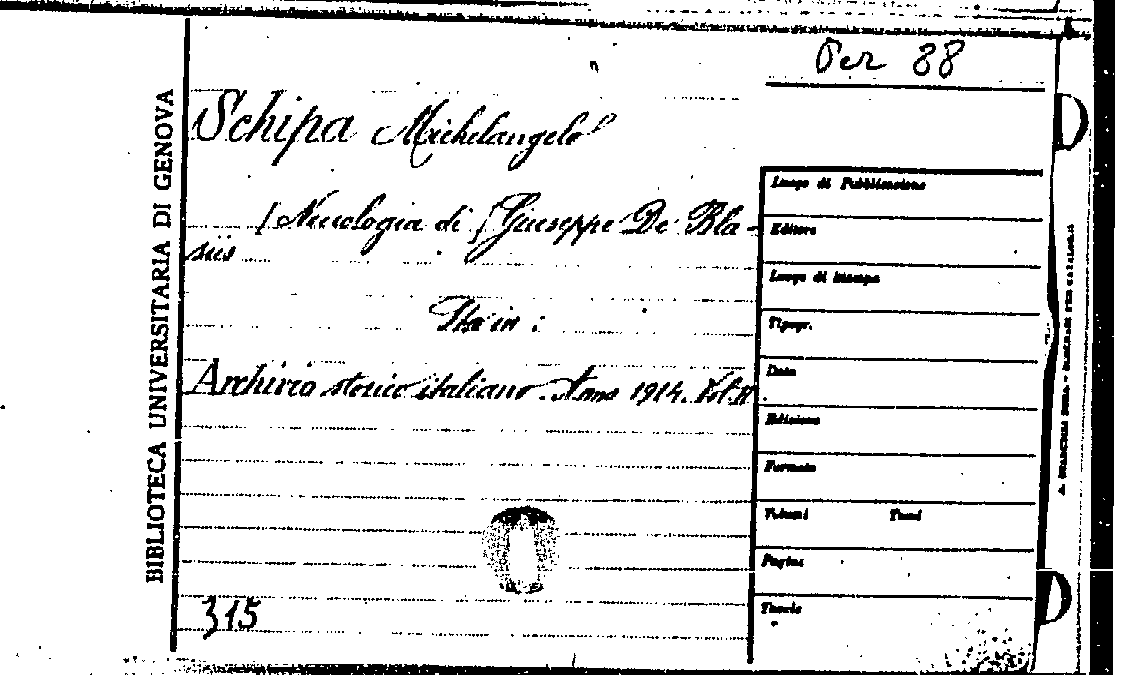 Per 88
BIBLIOTECA UNIVERSITARIA DI GENOVA
Schipa Michelangelo
[Necrologia di] Giuseppe De Bla-
siis
Sta in:
Archivio storico italiano. Anno 1914. Vol. II.
315
Luogo di Pubblicazione
Editore
Luogo di stampa
Tipogr.
Data
Edizione
Formato
Volumi Tomi
Pagine
Tavole